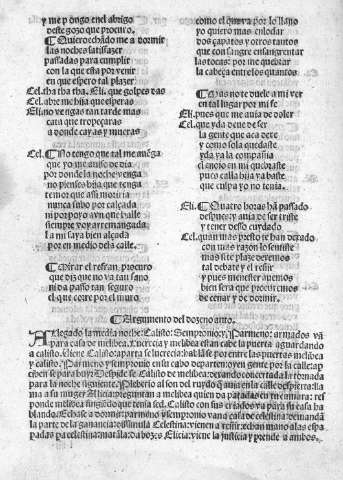 y me pongo enel abrigo
deste gozo que procuro.
Quiero echado me a dormir
las noches satisfazer
passadas para cumplir
con la que esta por venir
en que espero tal plazer
Cel. tha tha tha. Eli. que golpes das
Cel. abre me hija que esperas
Eli. no vengas tan tarde mas
cata que tropeçaras
a donde cayas y mueras
Cel. No tengo que tal me auēga
que yo me auiso de dia
por donde la noche venga
no pienses hija que tenga
temor que assi moriria
nunca subo por calçada
ni por poyo avn que halle
siempre voy arremangada
la mi saya bien alçada
por en medio dela calle.
Mirar el refran procuro
que diz que no va tan sano
ni da passo tan seguro
el que corre por el muro
como el que va por lo llano
yo quiero mas enlodar
dos çapatos y otros tantos
que con sangre ensangrentar
las tocas: por me quebrar
la cabeça entre los quantos
Mas no te duele a mi ver
en tal lugar por mi fe
Eli. pues que me auia de doler
Cel. que yda deue de ser
la gente que aca dexe
y como sola quedaste
yda ya la compañia
el enojo en mi quebraste
pues calla hija ya baste
que culpa yo no tenia.
Eli. Quatro horas hā passado
despues: y auia de ser triste
y tener desso cuydado
Cel. quan mas presto te han dexado
con mas razon lo sentiste
mas si te plaze dexemos
tal debate y el reñir
y pues menester auemos
bien sera que procuremos
de cenar y de dormir.
Argumento del dozeno auto.
Allegado la media noche: Calisto: Sempronio: y Parmeno: armados vā
para casa de melibea. Lucrecia y melibea estan cabe la puerta aguardando
a calisto. Viene Calisto: aparta se lucrecia: habla se por entre las puertas melibea
y calisto. Parmeno y sempronio en su cabo departen: oyen gente por la calle: ap
ciben se para huyr Despide se Calisto de melibea: dexando cōcertada la tornada
para la noche siguiente. Pleberio al son del ruydo q̄ auia en la calle despierta: lla
ma a su muger Alisa: preguntan a melibea quien da patadas en su camara: res
ponde melibea fingiēdo que tenia sed. Calisto con sus criados va para su casa ha
blando: Echa se a dormir: parmeno y sempronio van a casa de celestina: demandā
la parte de la ganancia: dissimula Celestina: vienen a reñir: echan mano a las espa
padas para celestina: mātā la: da bozes Elicia: viene la justicia y prende a ambos.